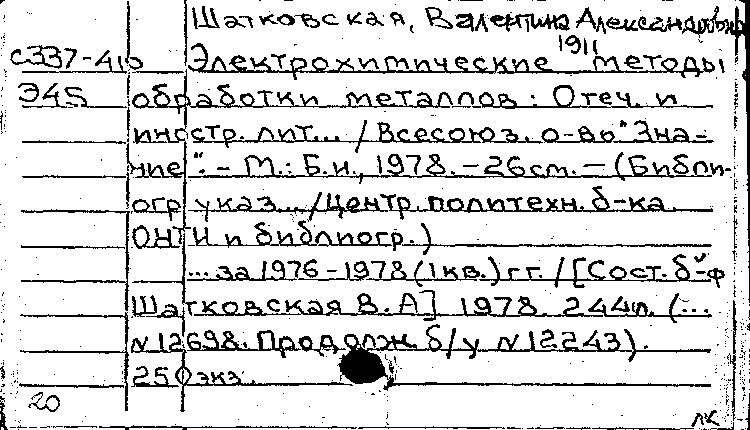 Шатковская, Валентина Александровна
1911
с337-410 Электрохимические методы
Э45 обработки металлов: Отеч. и
иностр. лит... / Всесоюз. о-во "Зна-
ние". - М.: Б.и., 1978. - 26см. - (Библи-
огр указ... /Центр. политехн. б-ка.
ОНТИ и библиогр.)
...за 1976-1978 (1кв.) гг. / [Сост. б-ф
Шатковская В. А] 1978. 244л. (...
N12698. Продолж. б/у N12243).
250 экз.
20
лк